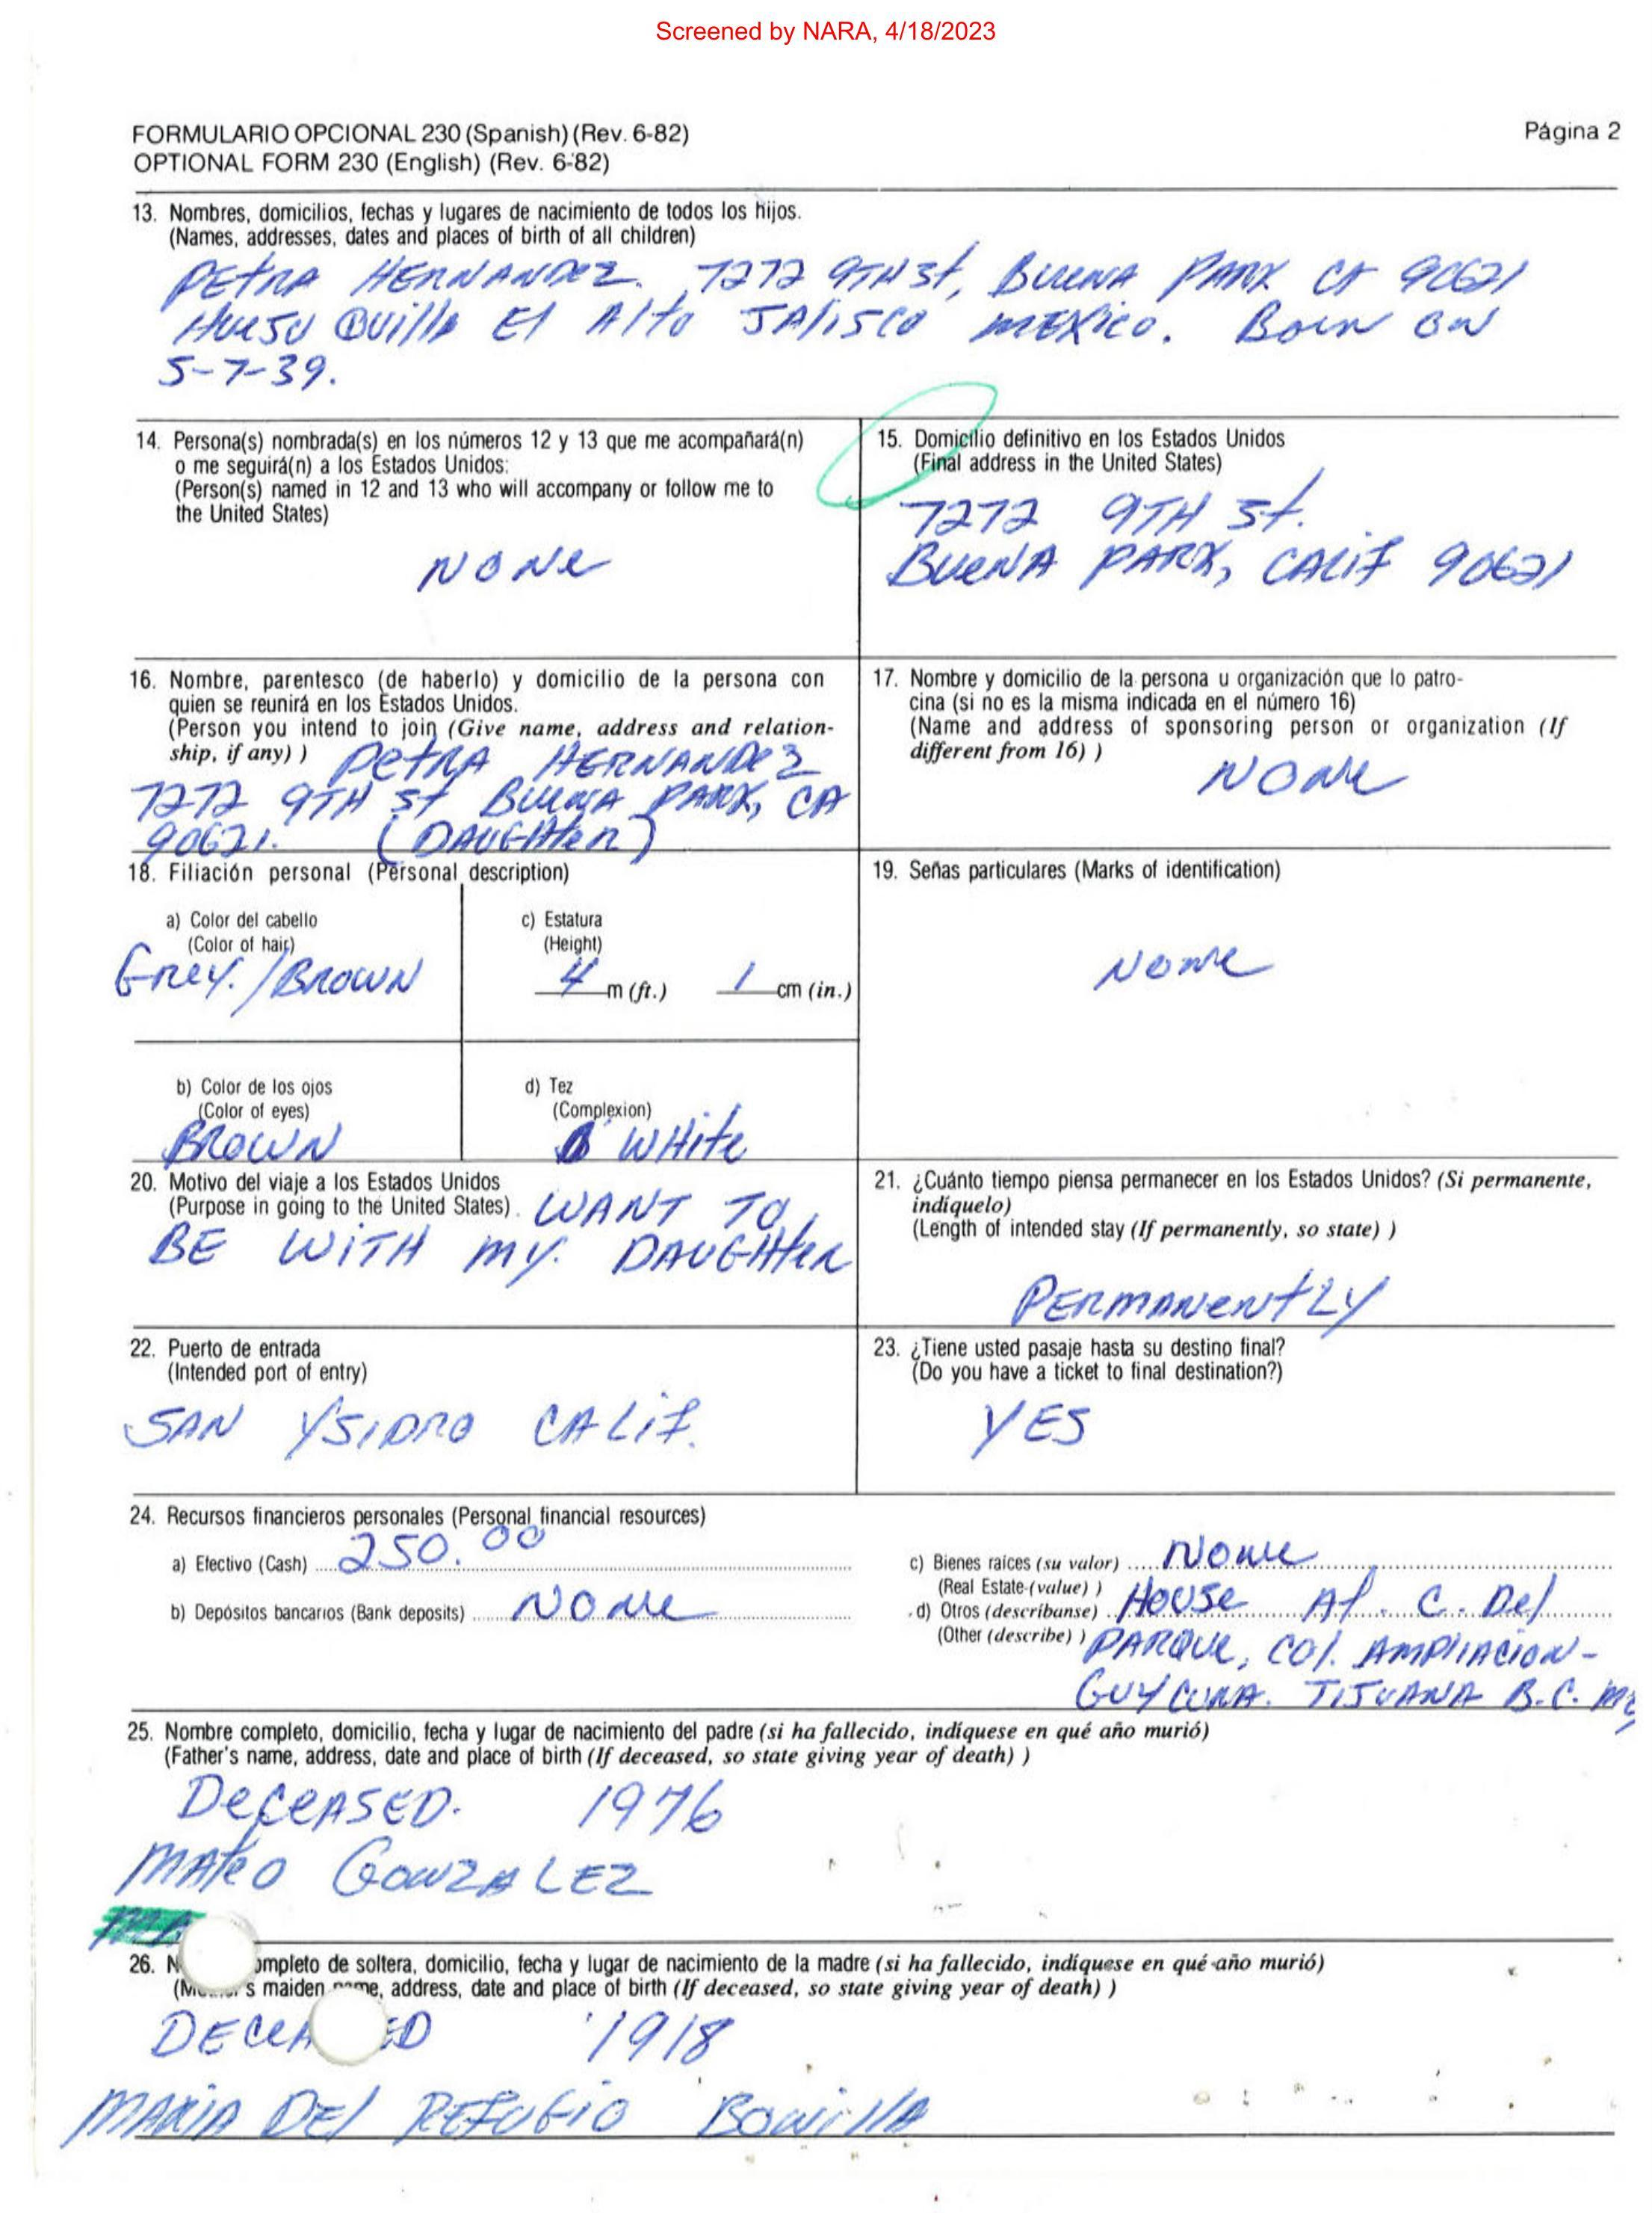 Screened by NARA, 4/18/2023
FORMULARIO OPCIONAL 230 (Spanish) (Rev. 6-82)
Página 2
OPTIONAL FORM 230 (English) (Rev. 6-82)
13. Nombres, domicilios, fechas y lugares de nacimiento de todos los hijos.
(Names, addresses, dates and places of birth of all children)
PEtRA HERNANDEZ. 7272 9TH St, BUENA PARK CA 90621
HUEJU QUilla El Alto JAliSCO MEXiCO. BORN ON
5-7-39.
14. Persona(s) nombrada(s) en los números 12 y 13 que me acompañará(n)
o me seguirá(n) a los Estados Unidos:
(Person(s) named in 12 and 13 who will accompany or follow me to
the United States)
NONe
15. Domicilio definitivo en los Estados Unidos
(Final address in the United States)
7272 9TH St.
BUeNA PARK, CAlif 90621
16. Nombre, parentesco (de haberlo) y domicilio de la persona con
quien se reunirá en los Estados Unidos.
(Person you intend to join (Give name, address and relation-
ship, if any) ) PetRA HERNANDEZ
7272 9TH St BUENA PARK, CA
90621. (DAUGHteR)
17. Nombre y domicilio de la persona u organización que lo patro-
cina (si no es la misma indicada en el número 16)
(Name and address of sponsoring person or organization (If
different from 16) )
NONe
18. Filiación personal (Personal description)
a) Color del cabello
(Color of hair)
GREY./BROWN
c) Estatura
(Height)
4 m (ft.) 1 cm (in.)
19. Señas particulares (Marks of identification)
NONe
b) Color de los ojos
(Color of eyes)
BROWN
d) Tez
(Complexion)
WHite
20. Motivo del viaje a los Estados Unidos
(Purpose in going to the United States). WANT TO
BE WITH MY. DAUGHteR
21. ¿Cuánto tiempo piensa permanecer en los Estados Unidos? (Si permanente,
indíquelo)
(Length of intended stay (If permanently, so state) )
PERMANentLY
22. Puerto de entrada
(Intended port of entry)
SAN YSIDRO CALif.
23. ¿Tiene usted pasaje hasta su destino final?
(Do you have a ticket to final destination?)
YES
24. Recursos financieros personales (Personal financial resources)
a) Efectivo (Cash) 250.00
b) Depósitos bancarios (Bank deposits) NONe
c) Bienes raíces (su valor) NONe
(Real Estate (value) )
d) Otros (descríbanse) House At. C. Del
(Other (describe) ) PARQUE, COl. AMPliACION-
GUYCURA. TIJUANA B.C.
25. Nombre completo, domicilio, fecha y lugar de nacimiento del padre (si ha fallecido, indíquese en qué año murió)
(Father's name, address, date and place of birth (If deceased, so state giving year of death) )
DeCeASED. 1976
MAteO GONZALEZ
26. N ompleto de soltera, domicilio, fecha y lugar de nacimiento de la madre (si ha fallecido, indíquese en qué año murió)
s maiden name, address, date and place of birth (If deceased, so state giving year of death) )
DECeA ED 1918
MARIA DEl REFUGiO BONillA